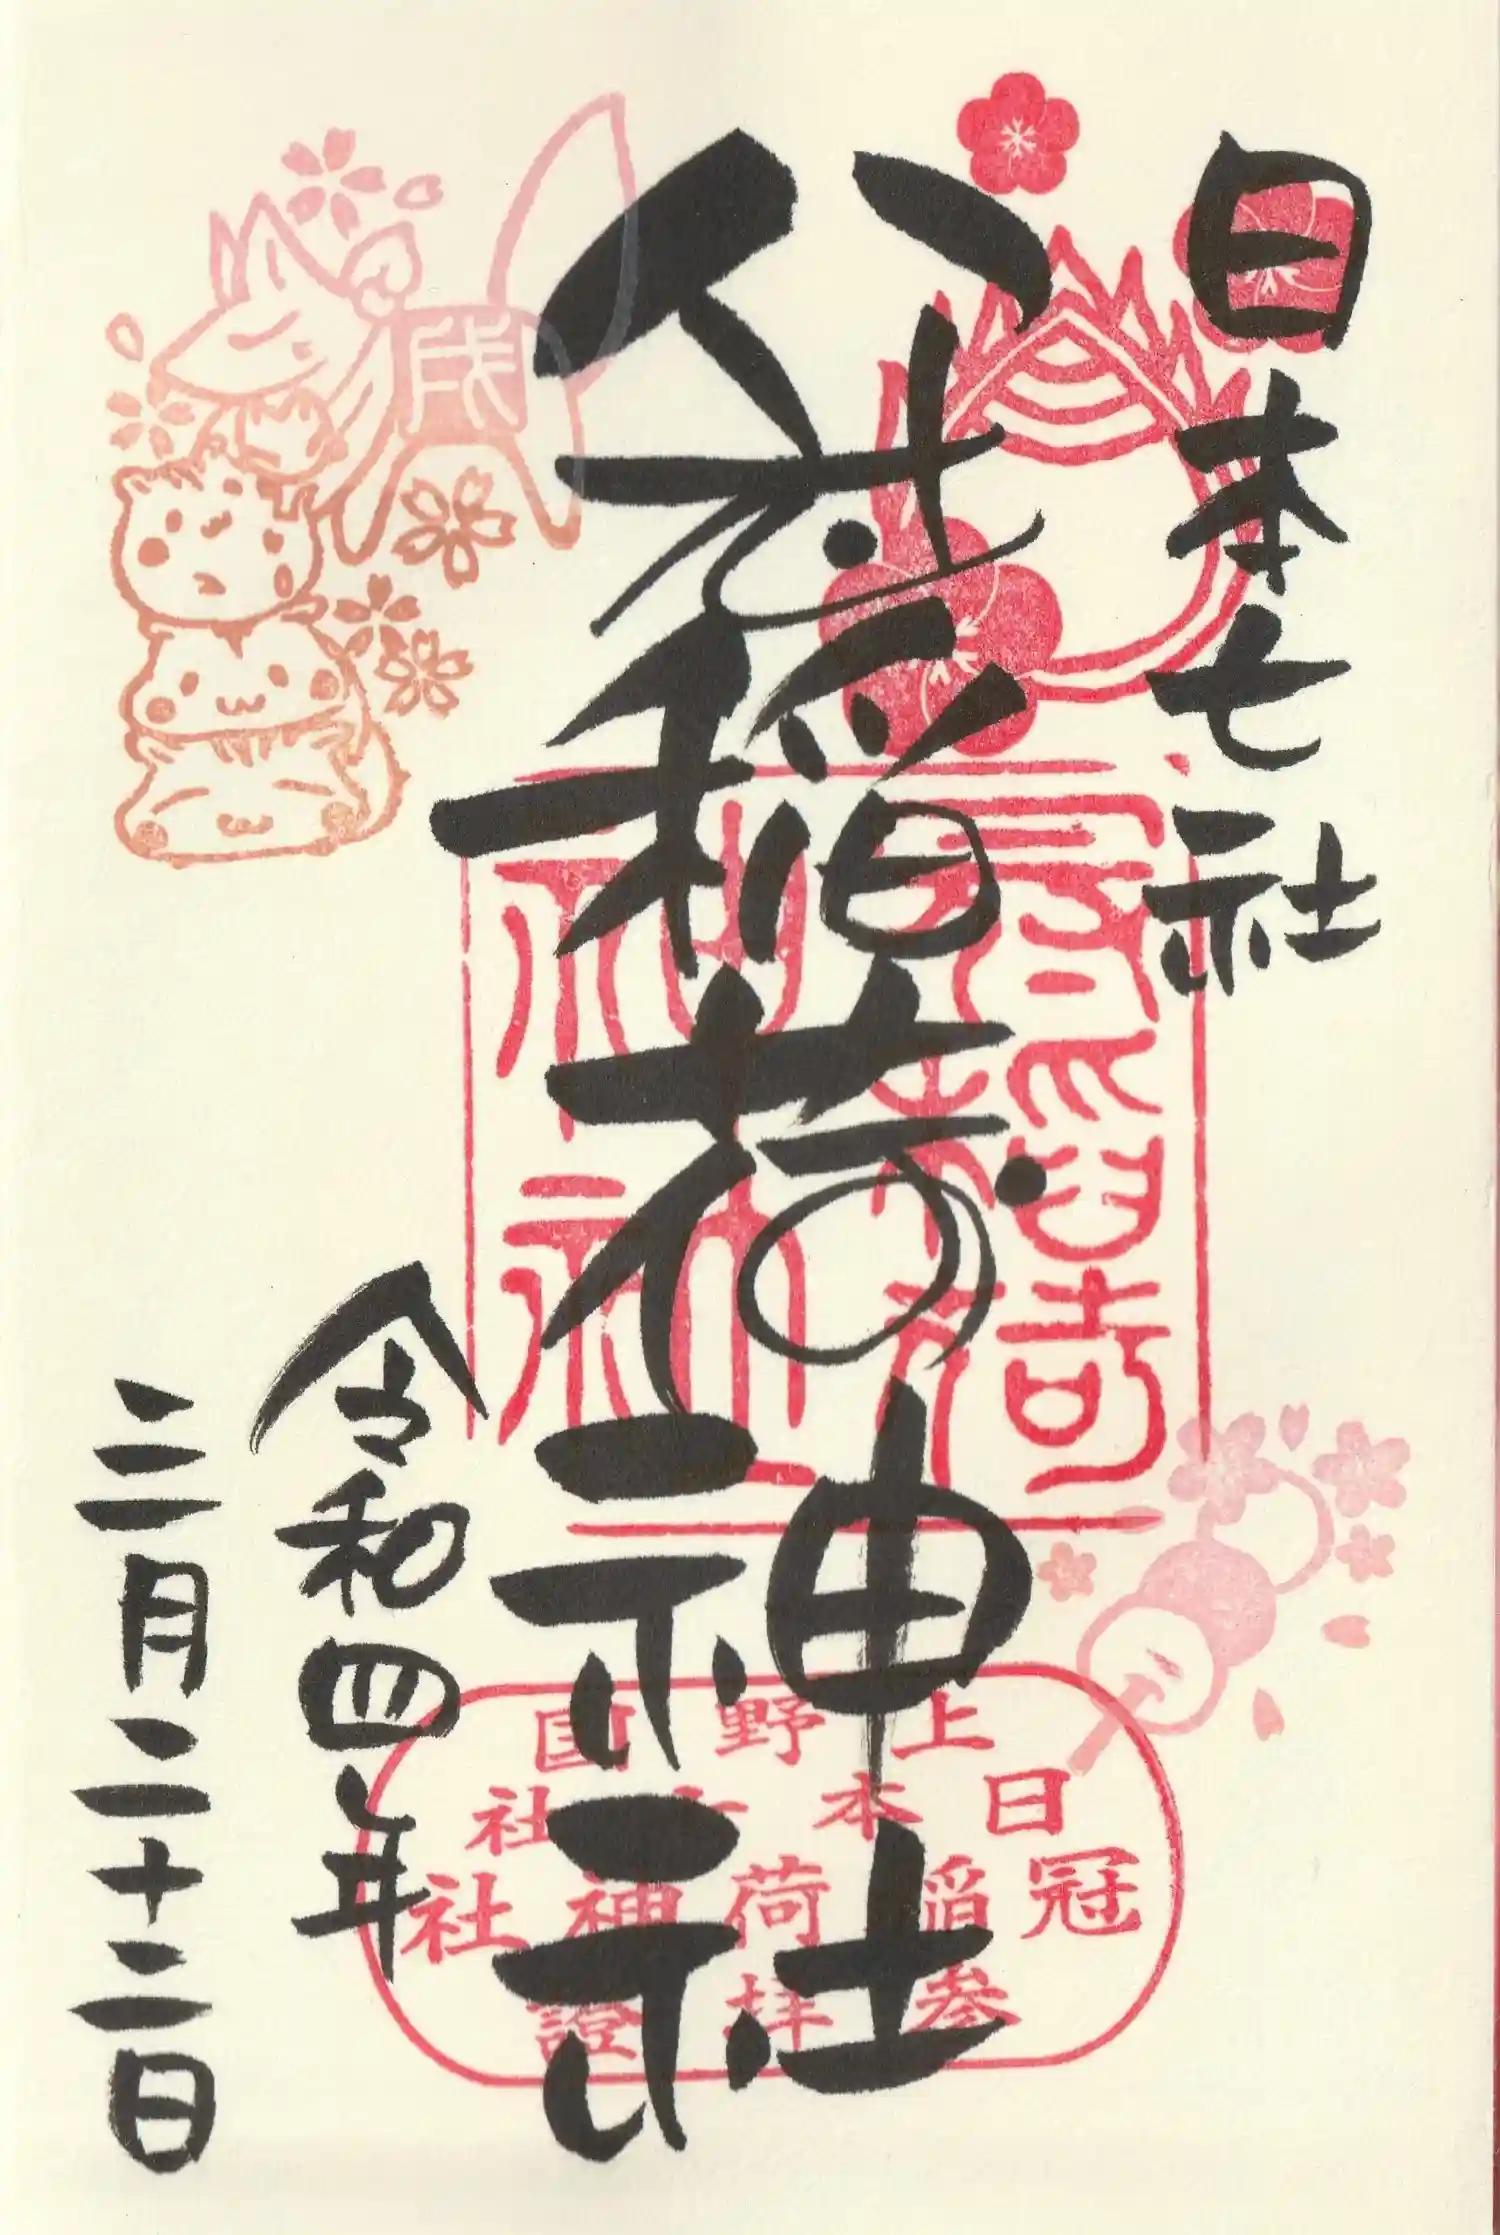 日本七社
冠稲荷神社
令和四年
三月二十二日
冠稲荷
神社
上野国
日本七社
冠稲荷神社
参拝證